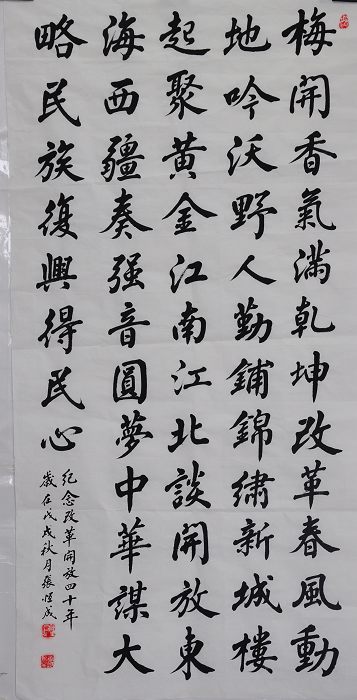 梅開香氣滿乾坤改革春風動
地吟沃野人勤鋪錦繡新城樓
起聚黃金江南江北談開放東
海西疆奏强音圓夢中華謀大
略民族復興得民心
紀念改革開放四十年
歲在戊戌秋月張恒成